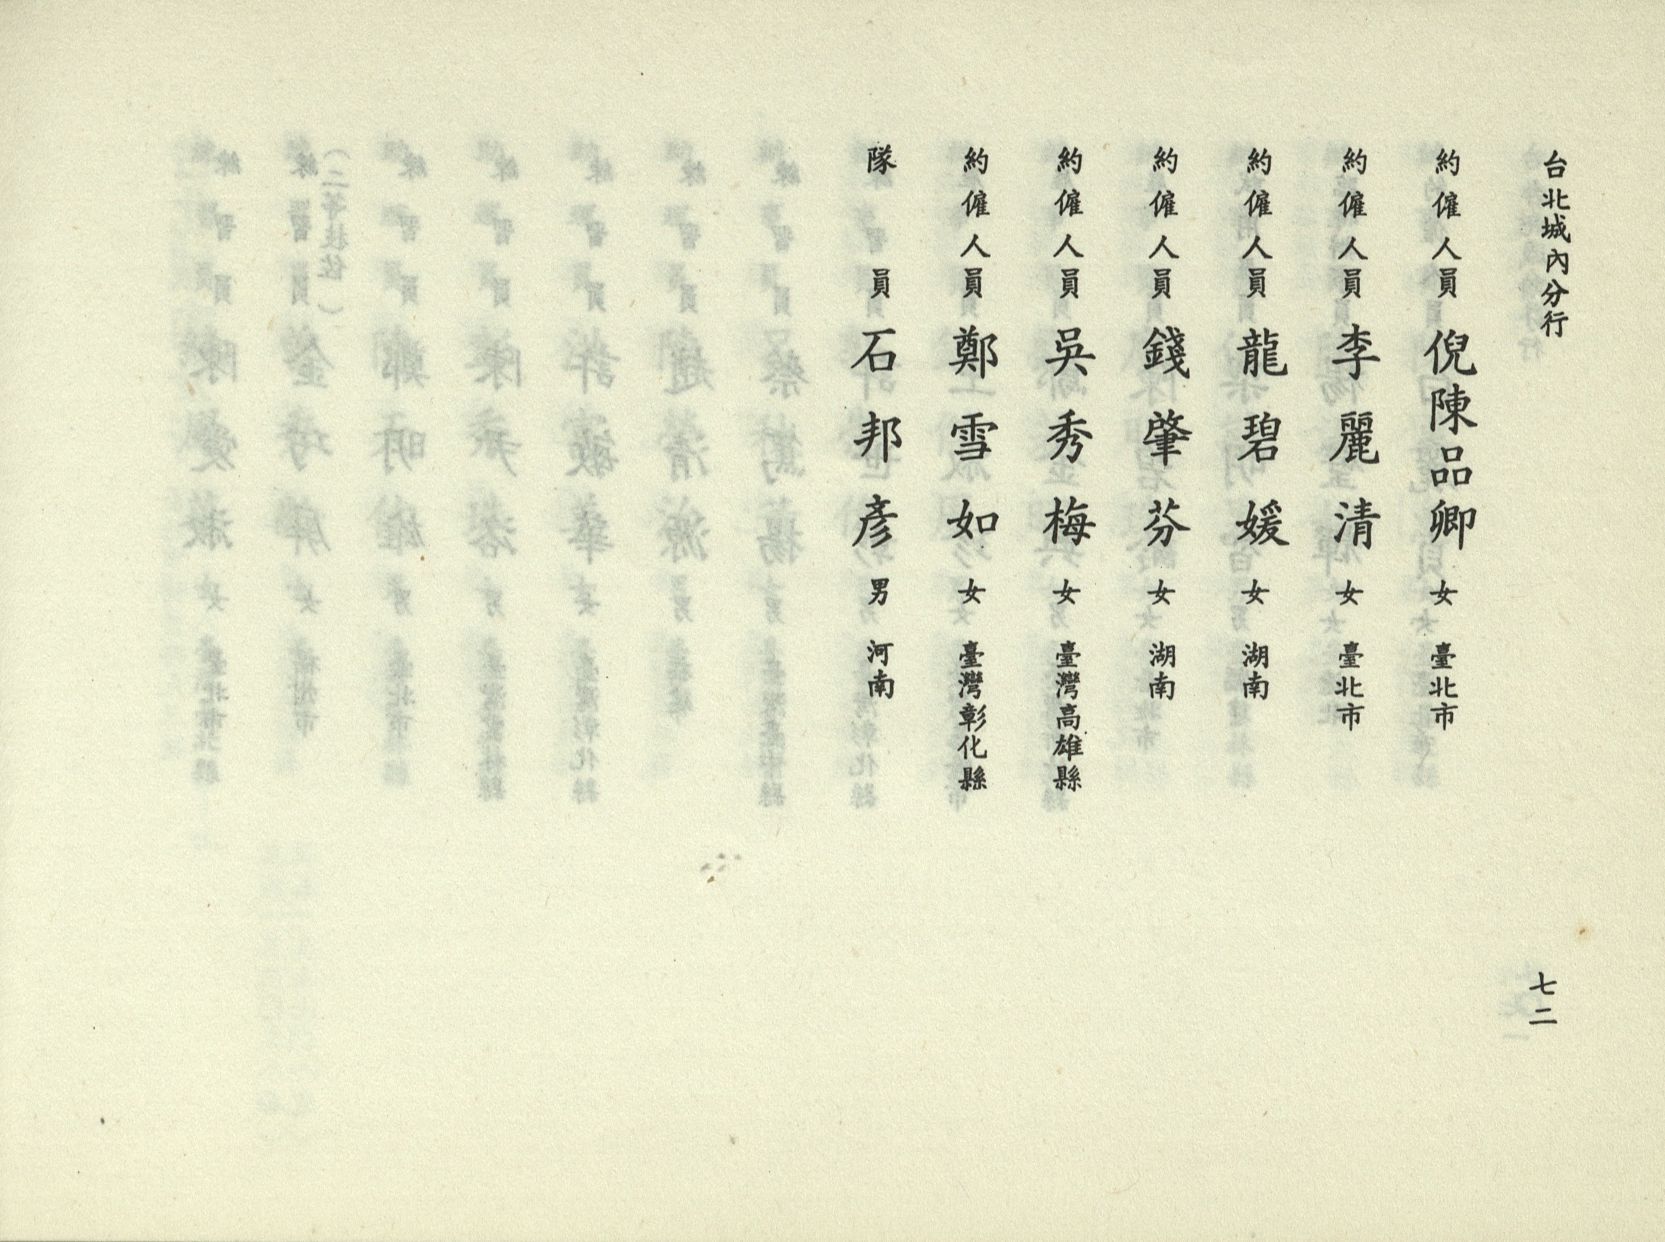 台北城內分行
約僱人員 倪陳品卿 女 臺北市
約僱人員 李麗清 女 臺北市
約僱人員 龍碧媛 女 湖南
約僱人員 錢肇芬 女 湖南
約僱人員 吳秀梅 女 臺灣高雄縣
約僱人員 鄭雪如 女 臺灣彰化縣
隊員 石邦彥 男 河南
七二